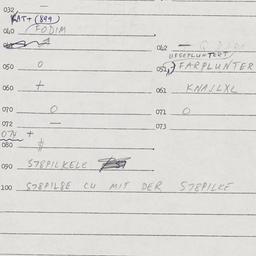 032 —
KAT+ (899)
040 FODIM
042 —
UFGEPLUNTERT
051 FARPLUNTER
050 O
060 +
061 KNALLXL
070 O
071 O
072 —
073
074 +
080 $
090 S78PILKELE
100 S78PILBE CU MIT DER S78PILKE